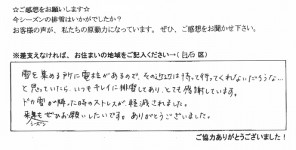 ☆ご感想をお願いします☆
今シーズンの排雪はいかがでしたか？
お客様の声が、私たちの原動力になっています。ぜひ、ご感想をお聞かせ下さい。
※差支えなければ、お住まいの地域をご記入ください→（ 区）
雪を集める所に電柱があるので、その辺は持って行ってくれないだろうな…
と思っていたら、いつもキレイに排雪してあり、とても感謝しています。
ドカ雪が降った時のストレスが軽減されました。
来シーズンもぜひお願いしたいです。ありがとうございました。
ご協力ありがとうございました！